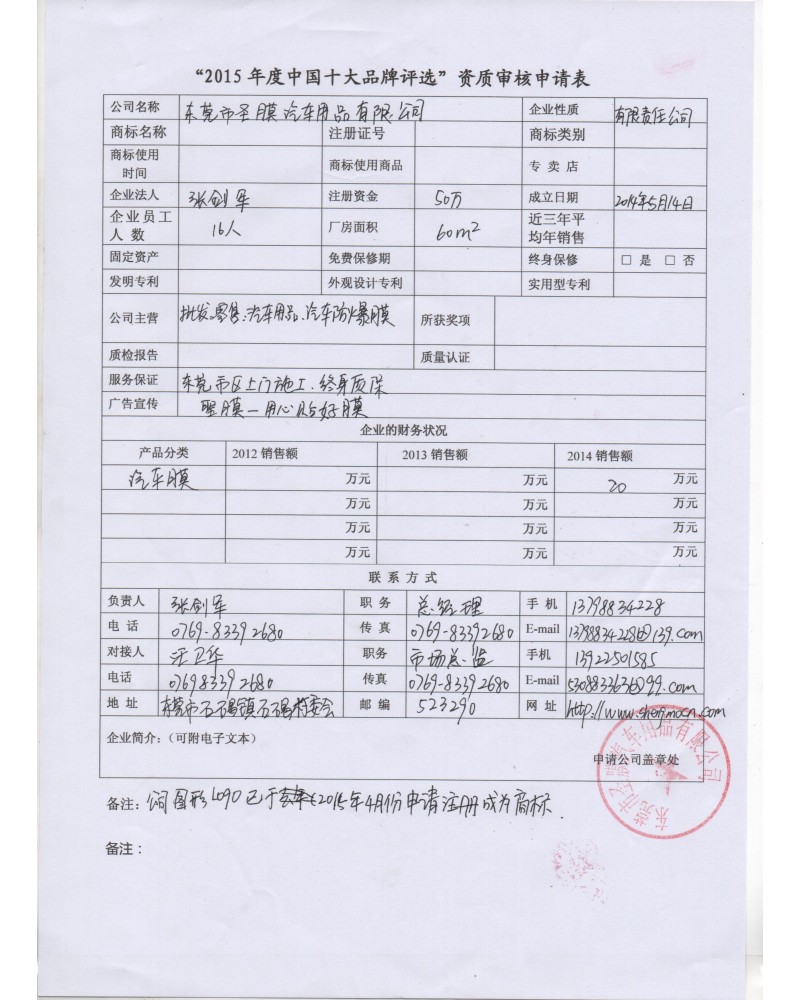 “2015 年度中国十大品牌评选”资质审核申请表
公司名称 东莞市圣膜汽车用品有限公司 企业性质 有限责任公司
商标名称 注册证号 商标类别
商标使用时间 商标使用商品 专卖店
企业法人 张剑军 注册资金 50万 成立日期 2014年5月14日
企业员工人数 16人 厂房面积 60m² 近三年平均年销售
固定资产 免费保修期 终身保修 □ 是 □ 否
发明专利 外观设计专利 实用型专利
公司主营 批发、零售:汽车用品、汽车防爆膜 所获奖项
质检报告 质量认证
服务保证 东莞市区上门施工、终身质保
广告宣传 圣膜一用心贴好膜
企业的财务状况
产品分类 2012 销售额 2013 销售额 2014 销售额
汽车膜 万元 万元 20 万元
万元 万元 万元
万元 万元 万元
万元 万元 万元
联系方式
负责人 张剑军 职务 总经理 手机 13798834228
电话 0769-83392680 传真 0769-83392680 E-mail 13798834228@139.com
对接人 汪卫华 职务 市场总监 手机 13922501585
电话 0769 83392680 传真 0769-83392680 E-mail 530883363@qq.com
地址 东莞市石碣镇石碣村委会 邮编 523290 网址 http://www.shengmocn.com
企业简介:(可附电子文本)
申请公司盖章处
东莞市圣膜汽车用品有限公司
备注: 公司图形logo已于2015年4月份申请注册成为商标.
备注: